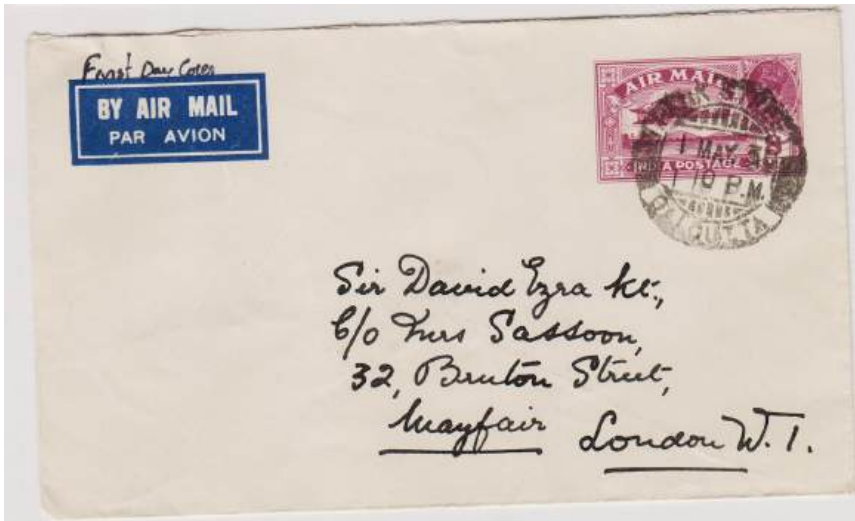 First Day Cover
BY AIR MAIL
PAR AVION
AIR MAIL
INDIA POSTAGE
1 MAY 3
1 10 P.M.
CALCUTTA
Sir David Ezra Kt.,
C/o Mrs Sassoon,
32, Bruton Street,
Mayfair London W. 1.